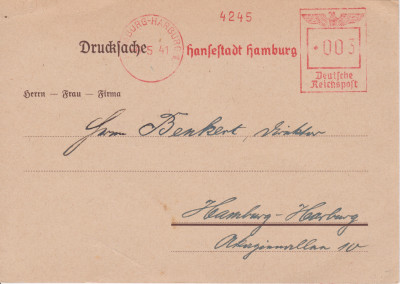 4245
HARBURG-HAMBURG
5 41
Drucksache
Hansestadt Hamburg
003
Deutsche
Reichspost
Herrn – Frau – Firma
Herrn Benkert, Direktor
Hamburg-Harburg
10